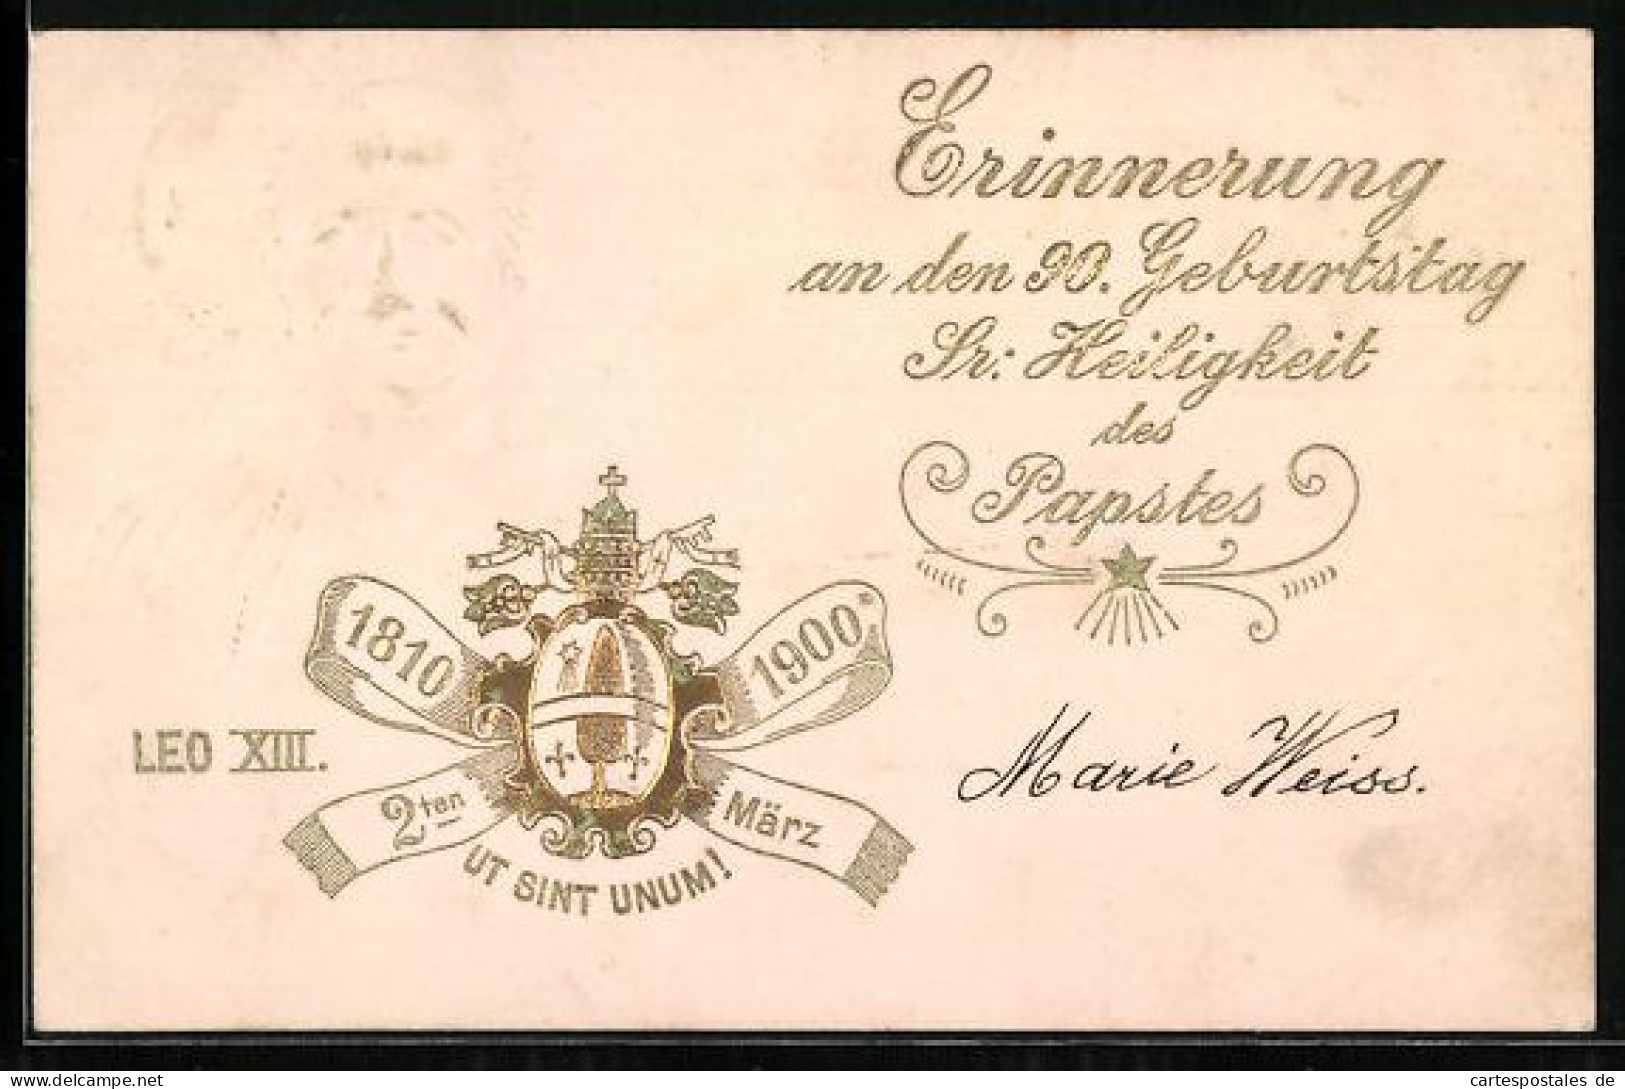 Erinnerung
an den 90. Geburtstag
Sr: Heiligkeit
des
Papstes
1810
1900
LEO XIII.
2ten
März
UT SINT UNUM!
Marie Weiss.
www.delcampe.net
cartespostales de